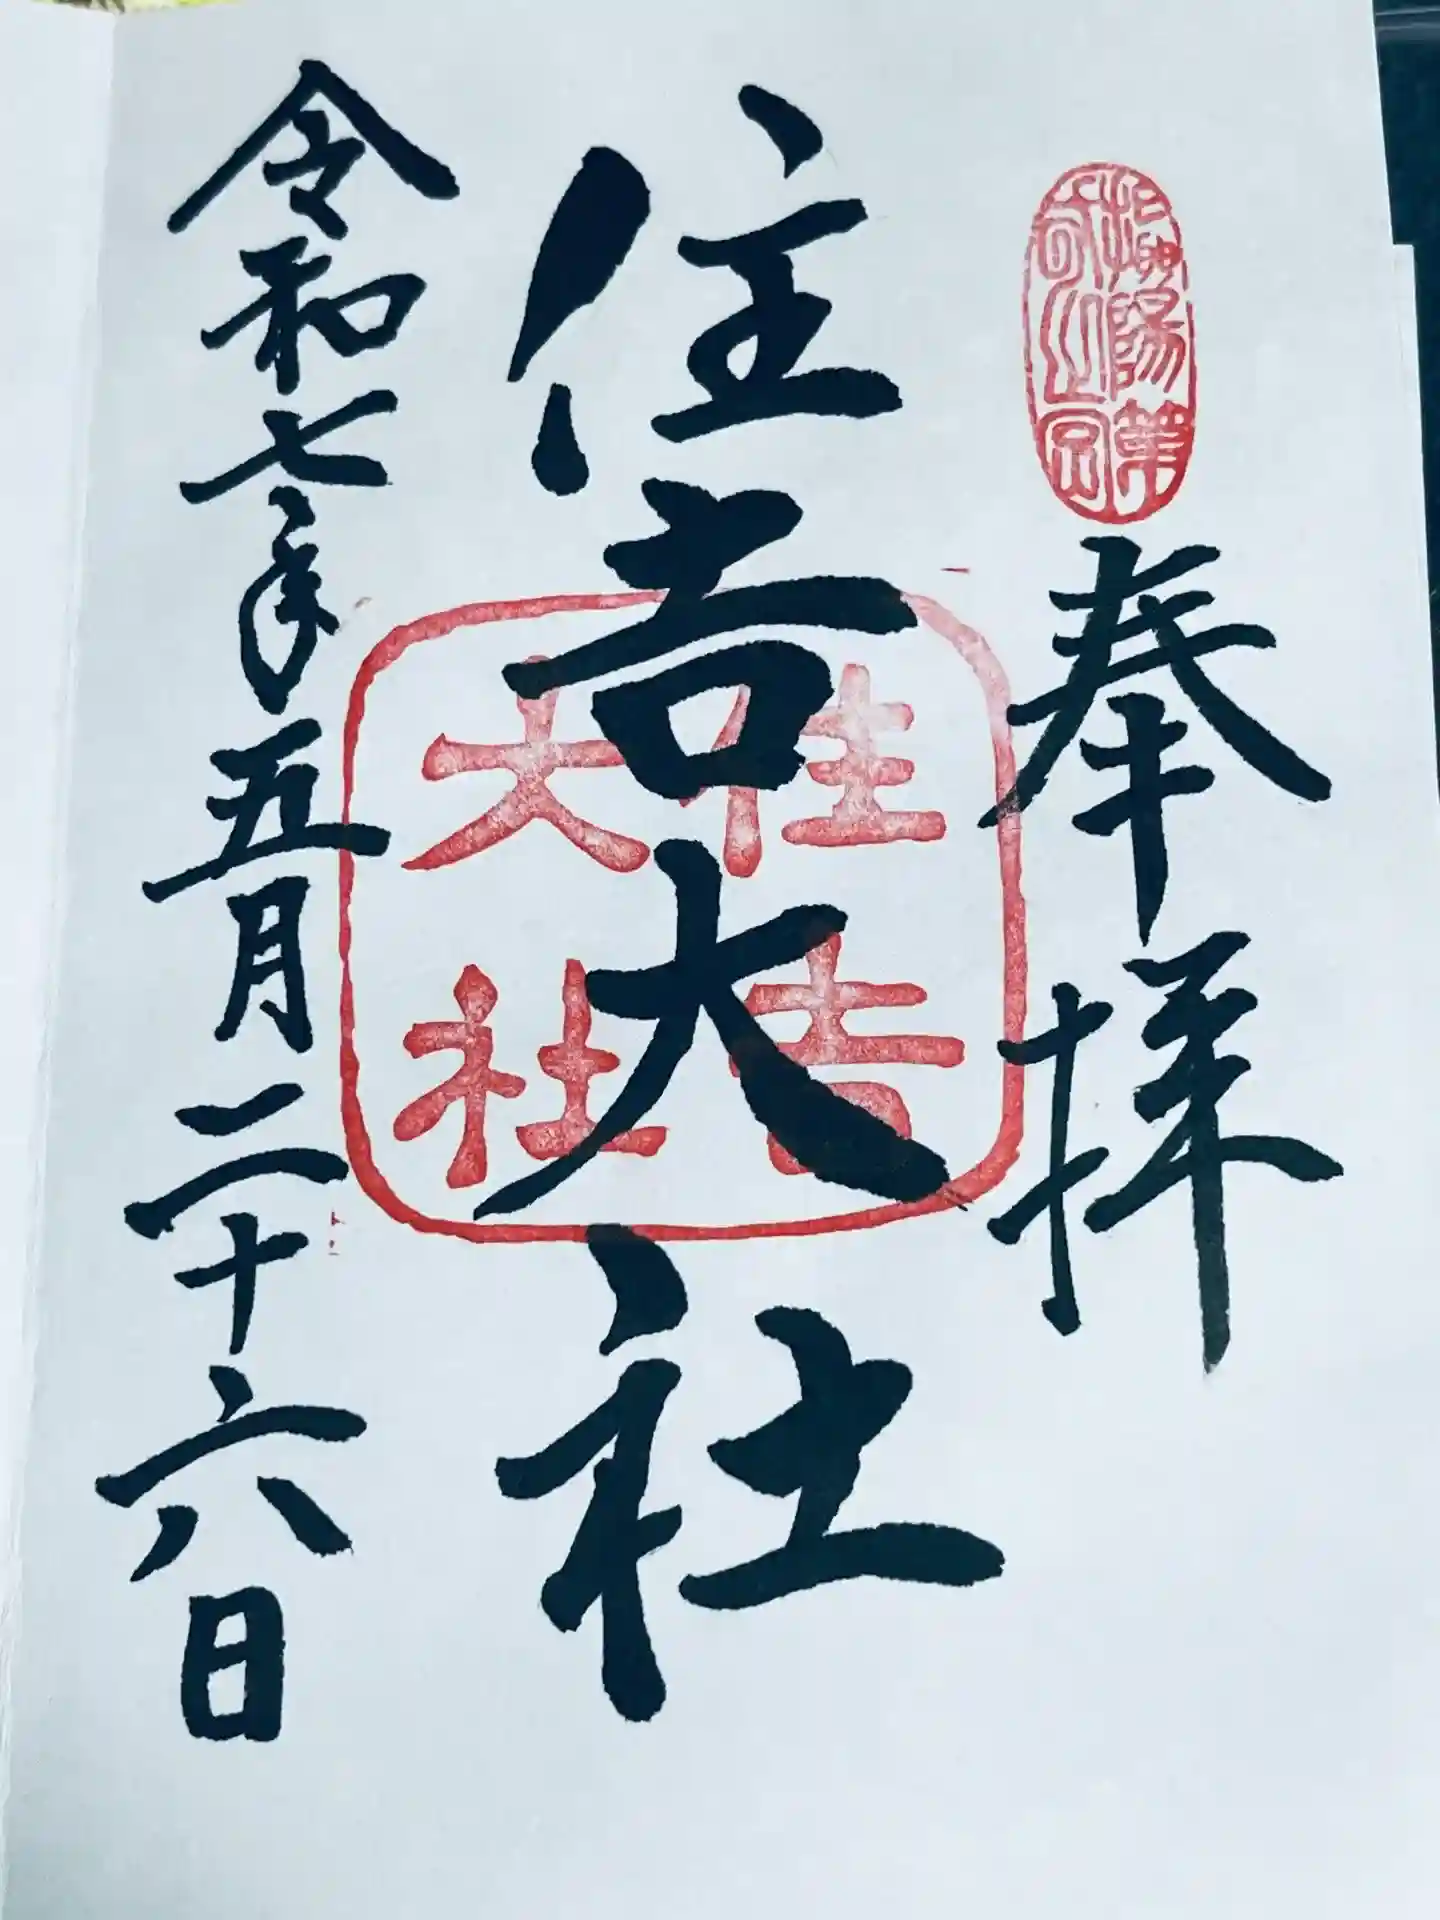 奉拝
住吉大社
令和七年五月二十六日
住吉
大社